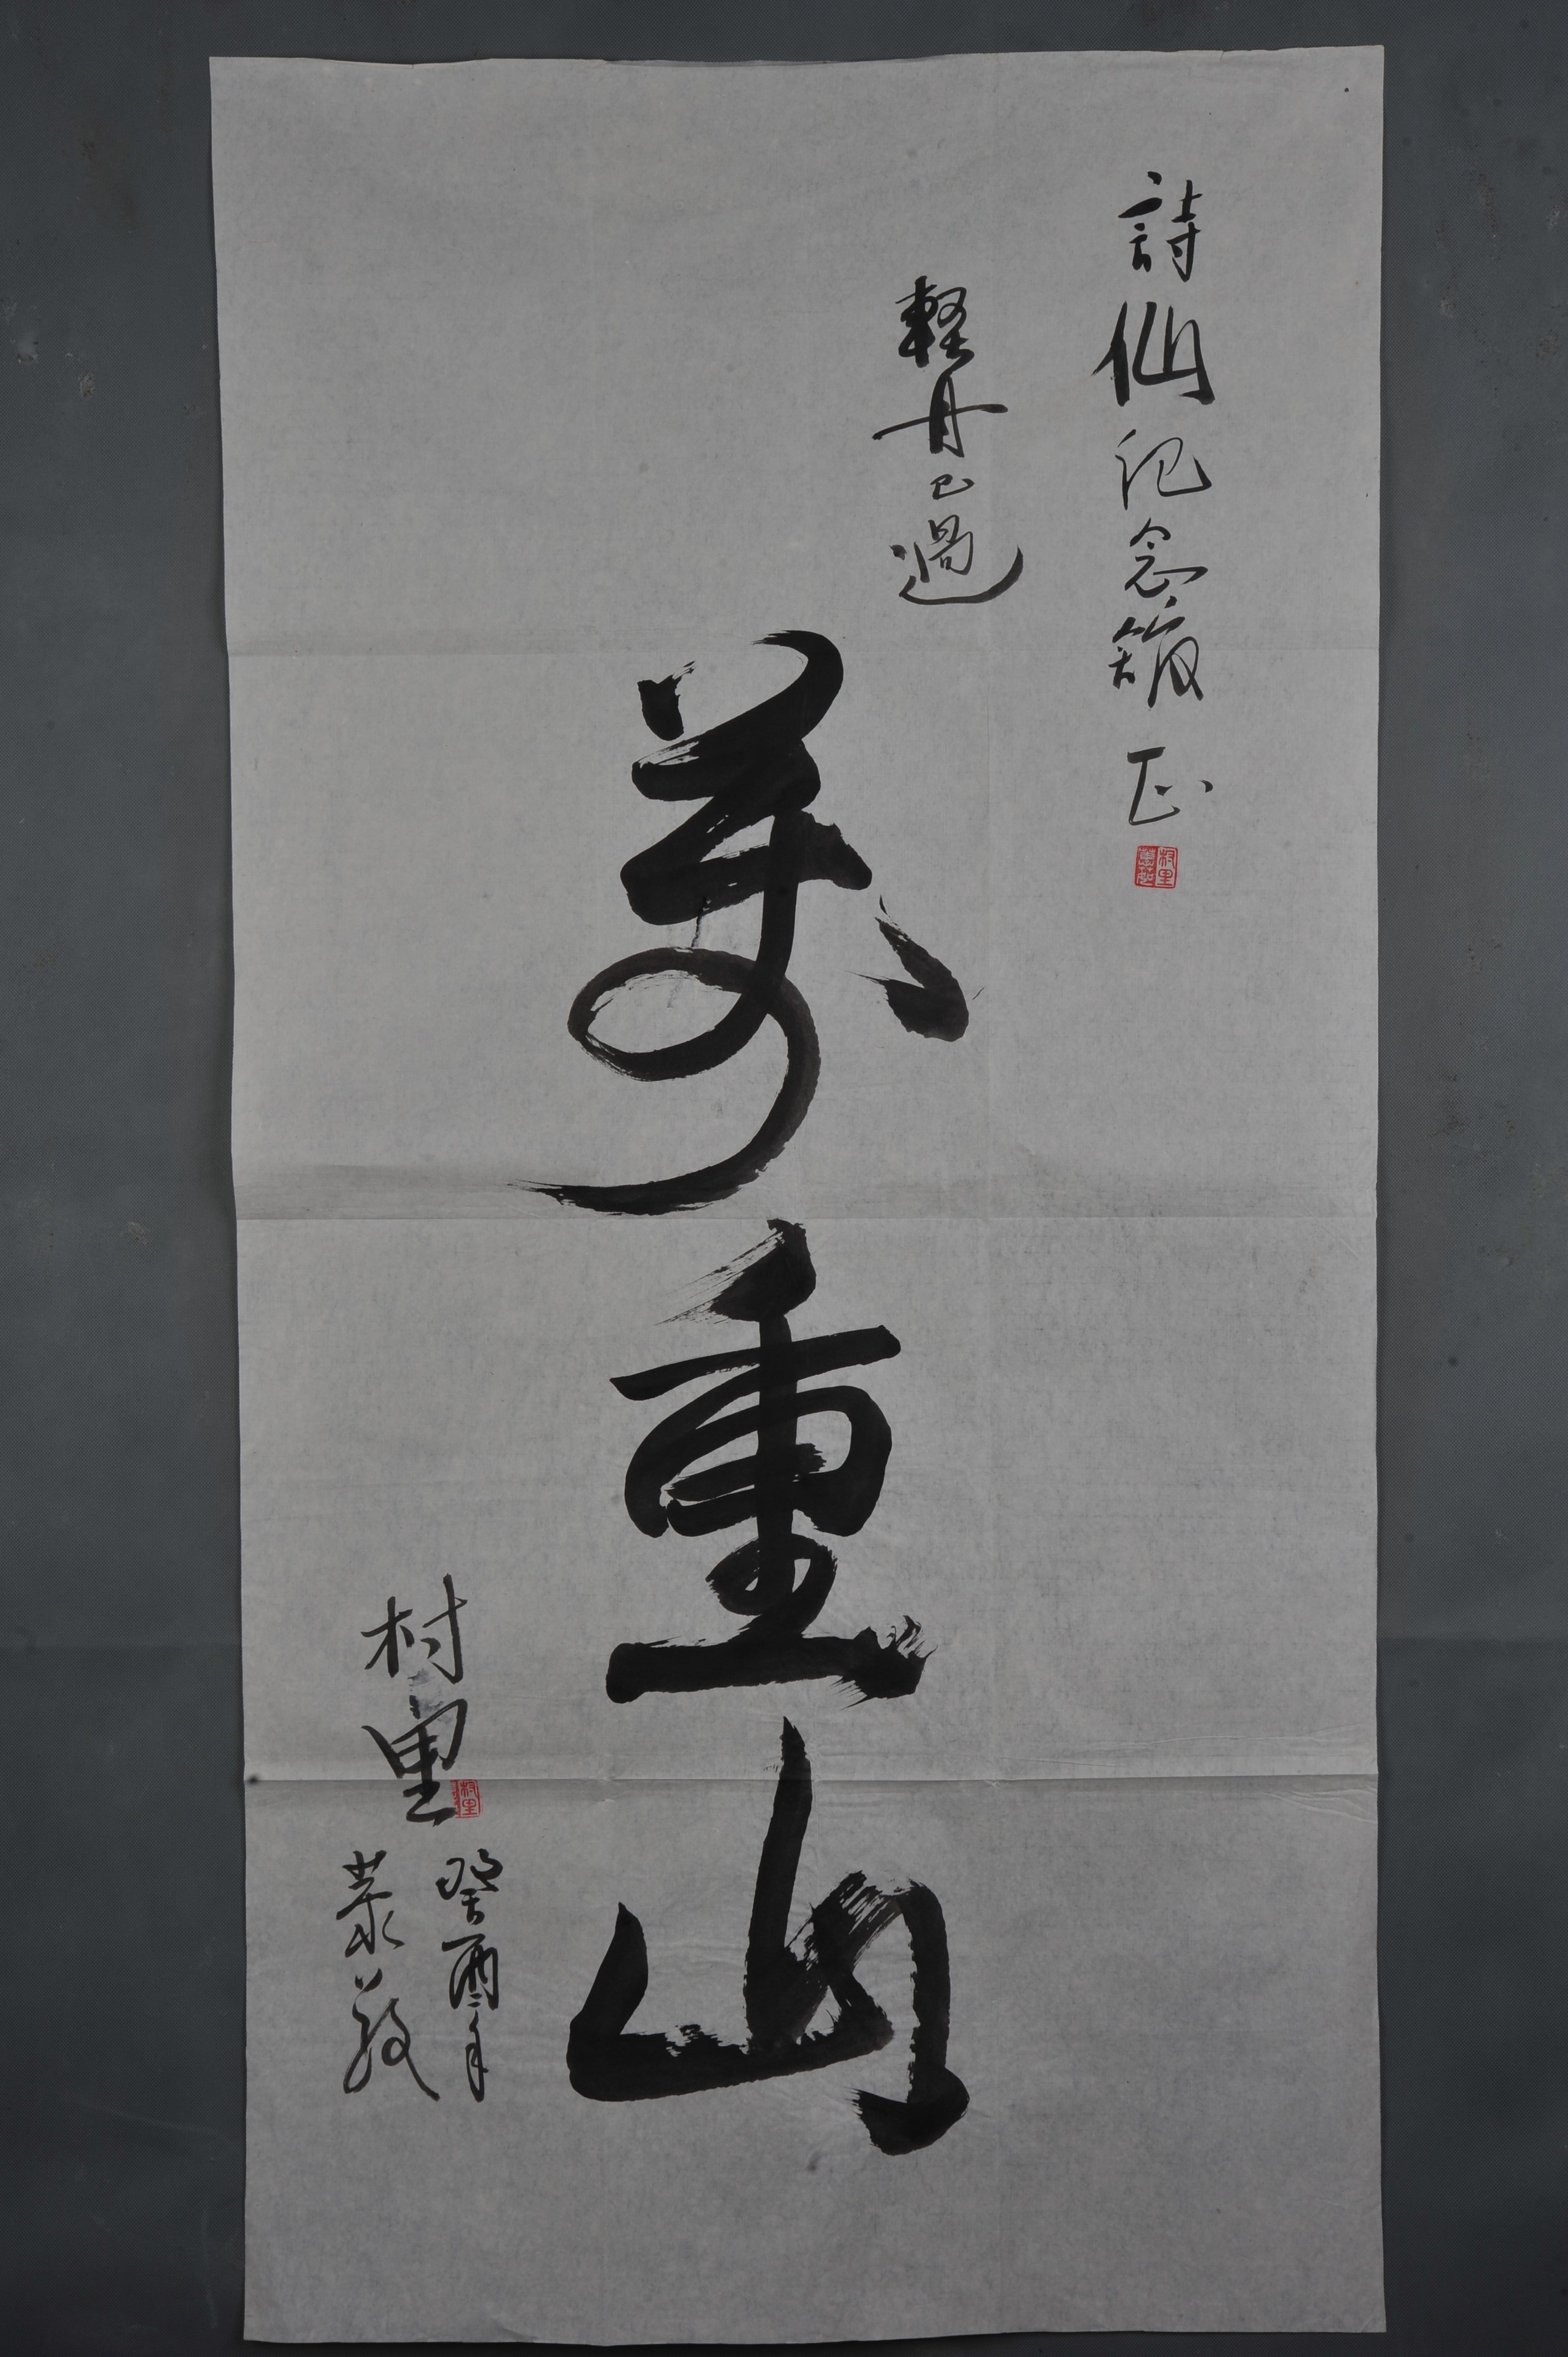 詩仙記念館 正
軽舟已過
萬重山
癸酉年
村里
村里
村里